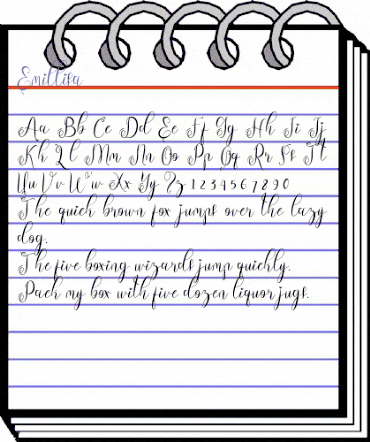 Emiltisa
Aa Bb Cc Dd Ee Ff Gg Hh Ii Jj
Kk Ll Mm Nn Oo Pp Qq Rr Ss Tt
Uu Vv Ww Xx Yy Zz 1 2 3 4 5 6 7 8 9 0
The quick brown fox jumps over the lazy
dog.
The five boxing wizards jump quickly.
Pack my box with five dozen liquor jugs.